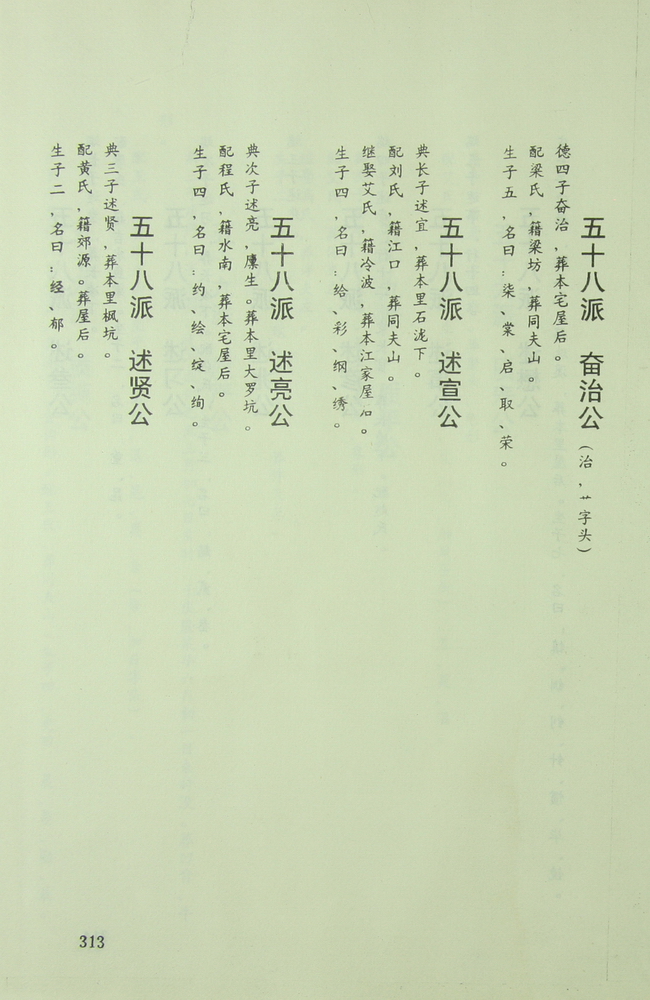 五十八派 奋治公（治，艹字头）
德四子奋治，葬本宅屋后。
配梁氏，籍梁坊，葬同夫山。
生子五，名曰：柒、棠、启、取、荣。
五十八派 述宣公
典长子述宜，葬本里石泷下。
配刘氏，籍江口，葬同夫山。
继娶艾氏，籍冷波，葬本江家屋后。
生子四，名曰：给、彩、纲、绣。
五十八派 述亮公
典次子述亮，廪生。葬本里大罗坑。
配程氏，籍水南，葬本宅屋后。
生子四，名曰：约、绘、绽、绚。
五十八派 述贤公
典三子述贤，葬本里枫坑。
配黄氏，籍郊源。葬屋后。
生子二，名曰：经、郁。
313